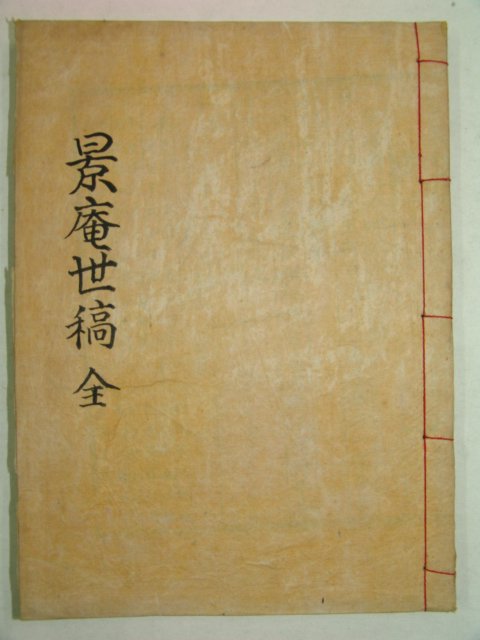 景庵世稿 全